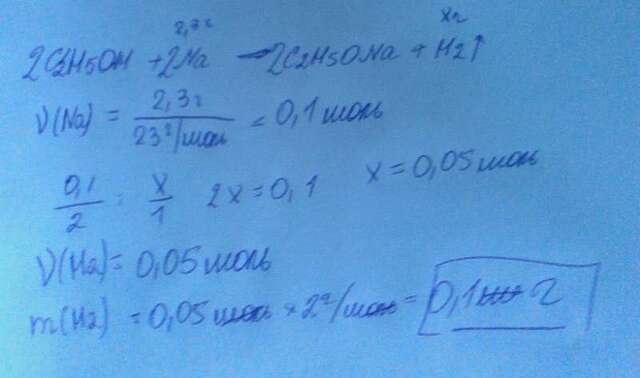 2,3г xг
2C2H5OH + 2Na → 2C2H5ONa + H2↑
ν(Na) = 2,3г / 23г/моль = 0,1 моль
0,1/2 = x/1 2x = 0,1 x = 0,05 моль
ν(H2) = 0,05 моль
m(H2) = 0,05 моль × 2г/моль = 0,1 г